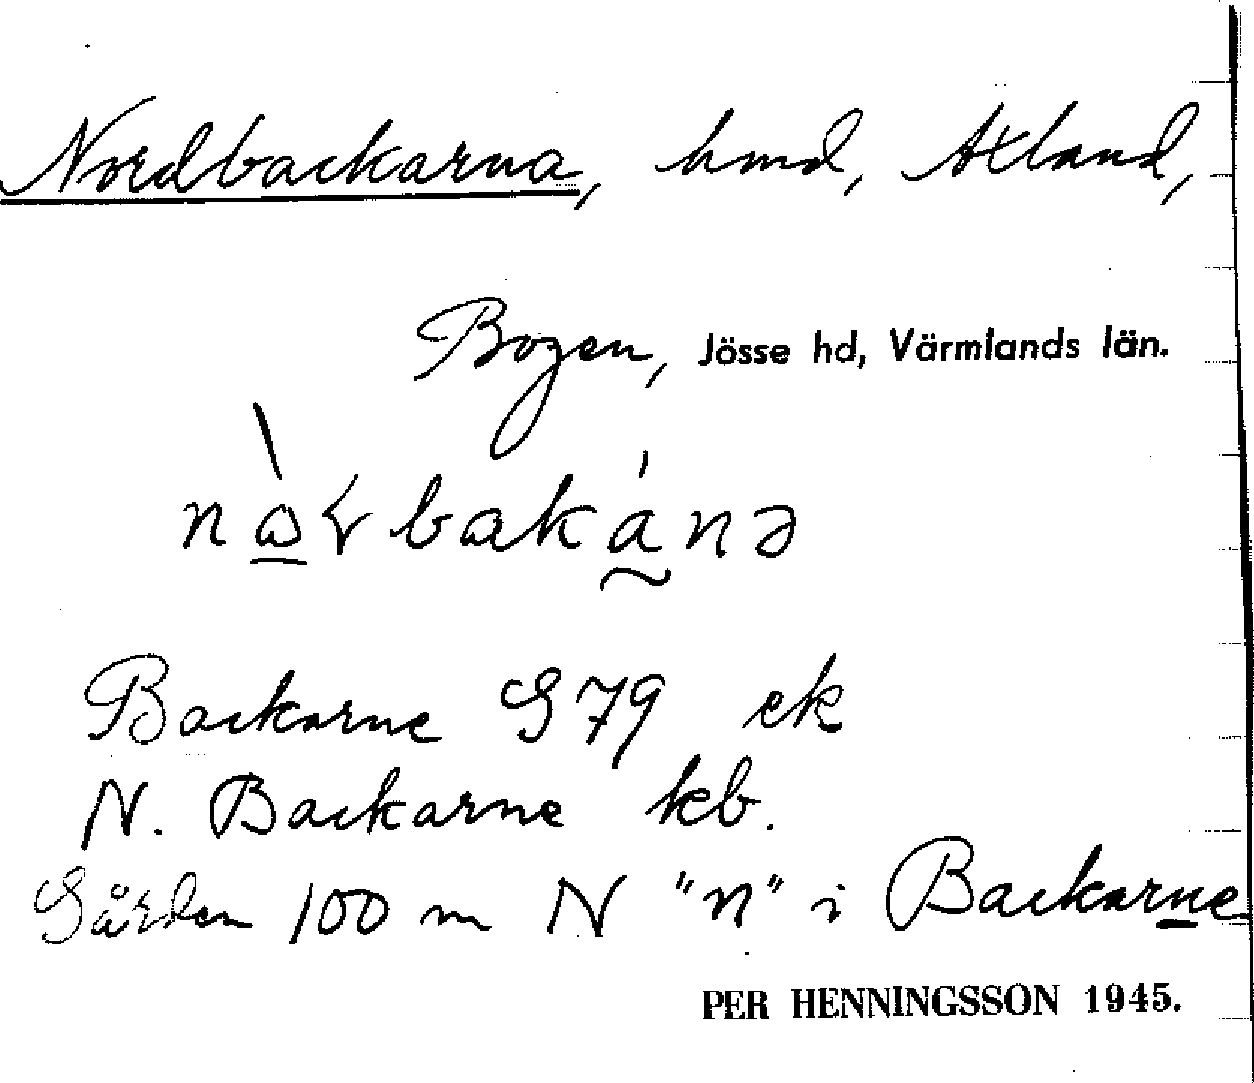 Nordbackarna, hmd, Axland,
Bogen, Jösse hd, Värmlands län.
Backarne G79 ek
N. Backarne kb.
Gården 100 m N "n" i Backarne
PER HENNINGSSON 1945.